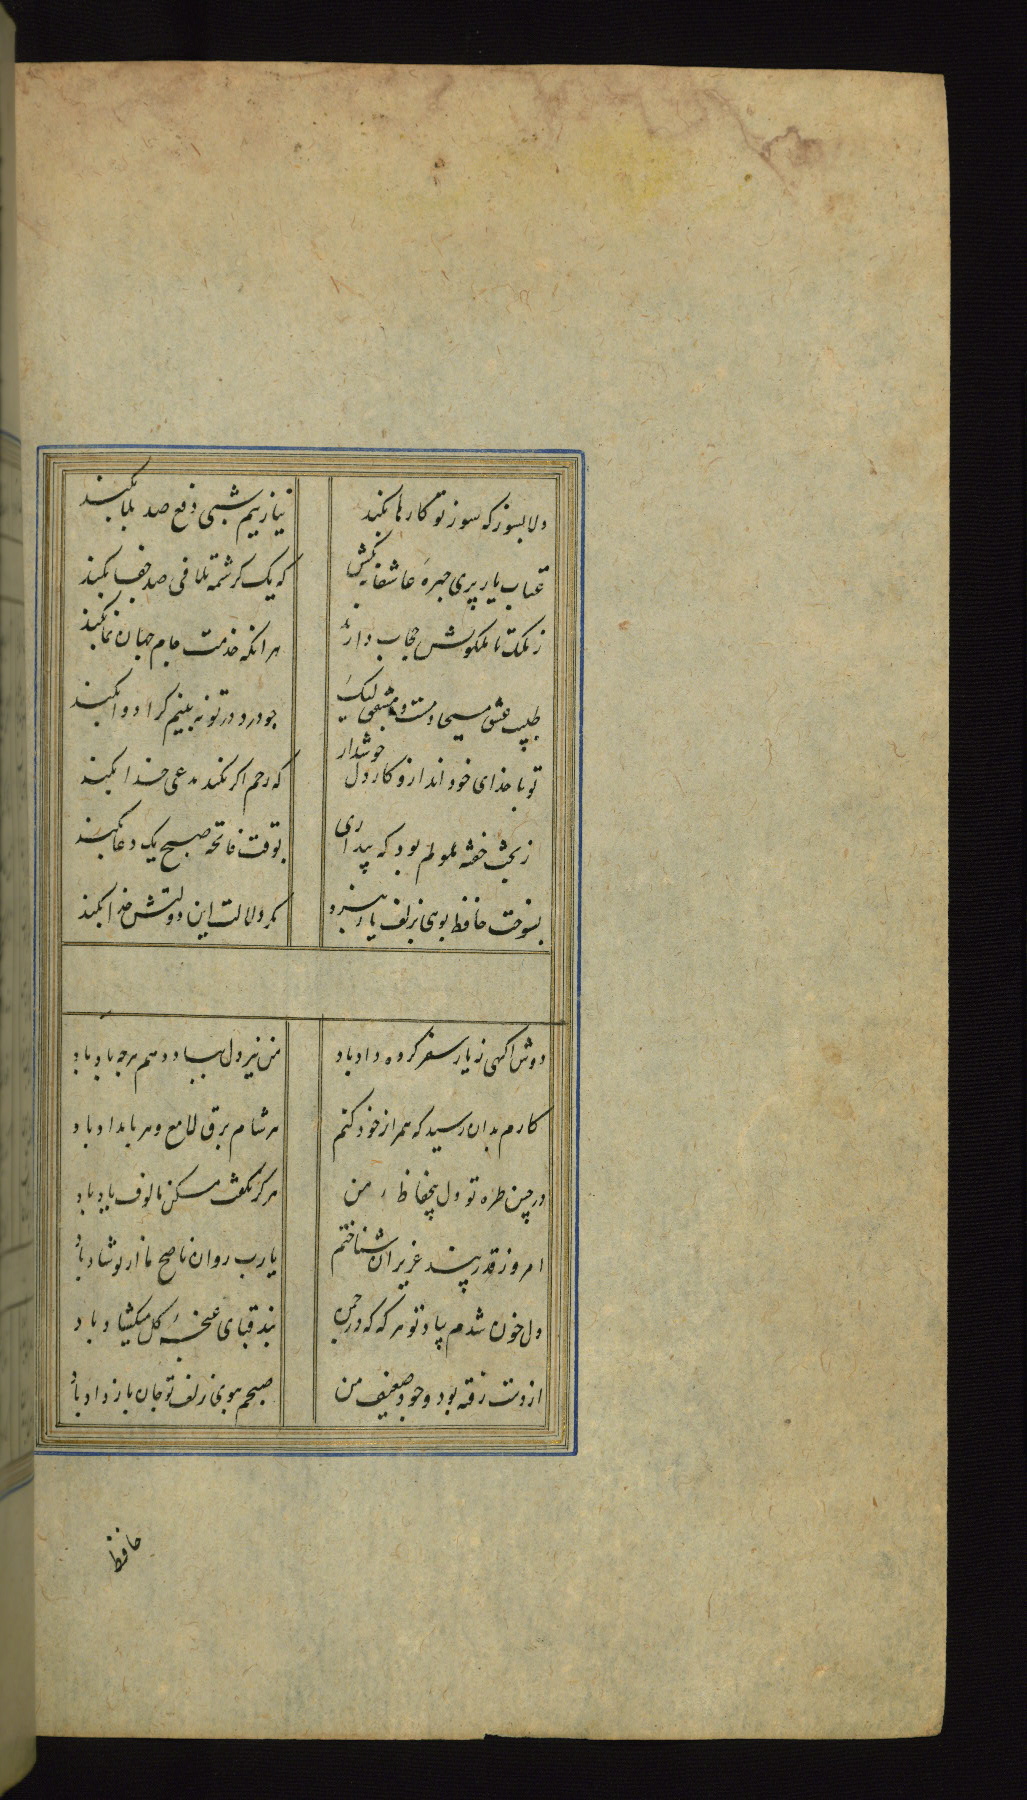 دلا بسوز که سوز تو کارها بکند
نیاز نیم شبی دفع صد بلا بکند
عتاب یار پری چهره عاشقانه بکش
که یک کرشمه تلافی صد جفا بکند
ز ملک تا ملکوتش حجاب دارند
هر آنکه خدمت جام جهان نما بکند
طبیب عشق مسیحا دمست و مشفق لیک
چو درد در تو نبیند کرا دوا بکند
تو با خدای خود انداز و کار دل خوشدار
که رحم اگر نکند مدعی خدا بکند
ز بخت خفته ملولم بود که بیداری
بوقت فاتحه صبح یک دعا بکند
بسوخت حافظ بوی بزلف یار نبرد
مگر دلالت این دولتش خدا بکند
دوش آگهی ز یار سفر کرده داد باد
من نیز دل بباد دهم هرچه باد باد
کارم بدان رسید که همراز خود کنم
هر شام برق لامع و هر بامداد باد
در چین طره تو دل بیحفاظ من
هرگز نگفت مسکن مالوف یاد باد
امروز قدر پند عزیزان شناختم
یا رب روان ناصح ما از تو شاد باد
دل خون شدم بیاد تو هر گه که در چمن
بند قبای غنچه گل میگشاد باد
از دست رفته بود وجود ضعیف من
صبحم ببوی زلف تو جان باز داد باد
حافظ